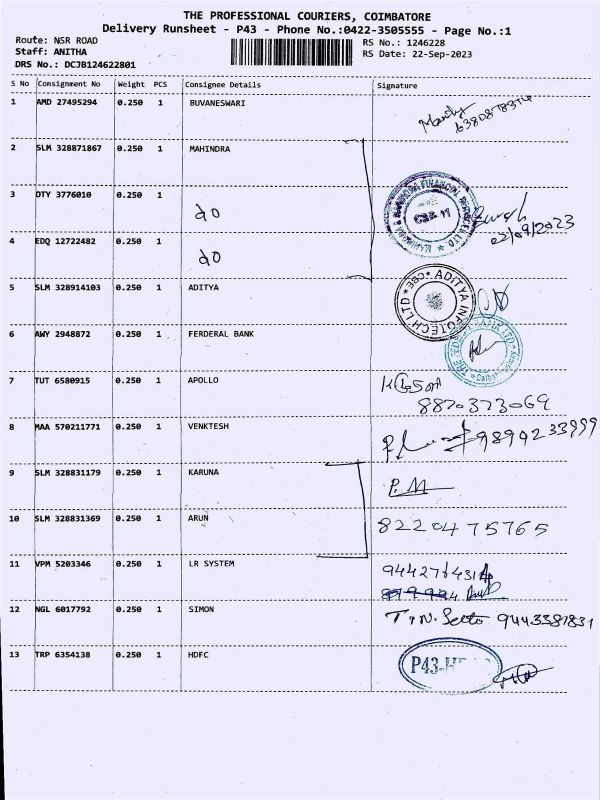 THE PROFESSIONAL COURIERS, COIMBATORE
Delivery Runsheet - P43 - Phone No.:0422-3505555 - Page No.:1
Route: NSR ROAD
RS No.: 1246228
Staff: ANITHA
RS Date: 22-Sep-2023
DRS No.: DCJB124622801
S No Consignment No Weight PCS Consignee Details Signature
1 AMD 27495294 0.250 1 BUVANESWARI
2 SLM 328871867 0.250 1 MAHINDRA
3 OTY 3776010 0.250 1 do
22/09/2023
4 EDQ 12722482 0.250 1 do
5 SLM 328914103 0.250 1 ADITYA
ADITYA INFOTECH LTD
6 AWY 2948872 0.250 1 FERDERAL BANK
7 TUT 6580915 0.250 1 APOLLO
8870373069
8 MAA 570211771 0.250 1 VENKTESH
9894233999
9 SLM 328831179 0.250 1 KARUNA
P.M
10 SLM 328831369 0.250 1 ARUN 8220475765
11 VPM 5203346 0.250 1 LR SYSTEM
12 NGL 6017792 0.250 1 SIMON 9443381831
13 TRP 6354138 0.250 1 HDFC P43-H